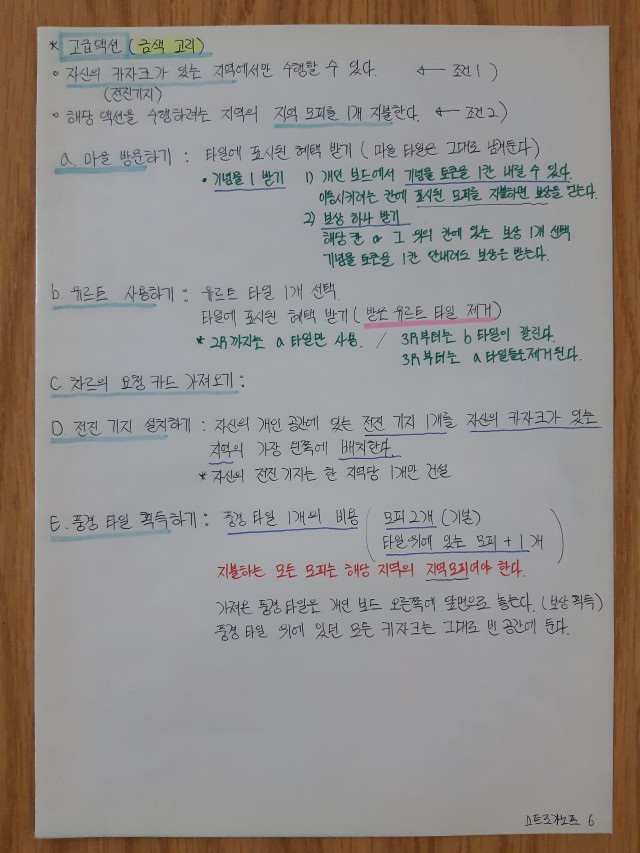 * 고급액션 (금색 고리)
◦ 자신의 카자크가 있는 지역에서만 수행할 수 있다. ← 조건 1)
(전진기지)
◦ 해당 액션을 수행하려는 지역의 지역 모피를 1개 지불한다. ← 조건 2)
a. 마을 방문하기 : 타일에 표시된 혜택 받기 ( 마을 타일은 그대로 남겨둔다 )
• 기념물 1 받기 1) 개인 보드에서 기념물 토큰을 1칸 내릴 수 있다.
이동시키려는 칸에 표시된 모피를 지불하면 보상을 받는다.
2) 보상 하나 받기
해당 칸 or 그 위의 칸에 있는 보상 1개 선택
기념물 토큰을 1칸 안내려도 보상은 받는다.
b. 유르트 사용하기 : 유르트 타일 1개 선택.
타일에 표시된 혜택 받기 ( 받은 유르트 타일 제거 )
* 2R까지는 a 타일만 사용. / 3R부터는 b 타일이 깔린다.
3R부터는 a 타일들도 제거된다.
C. 차르의 요청 카드 가져오기 :
D. 전진 기지 설치하기 : 자신의 개인 공간에 있는 전진 기지 1개를 자신의 카자크가 있는
지역의 가장 왼쪽에 배치한다.
* 자신의 전진기지는 한 지역당 1개만 건설
E. 풍경 타일 획득하기 : 풍경 타일 1개의 비용 ( 모피 2개 (기본)
타일 위에 있는 모피 + 1 개 )
지불하는 모든 모피는 해당 지역의 지역모피여야 한다.
가져온 풍경 타일은 개인 보드 오른쪽에 앞면으로 놓는다. (보상 획득)
풍경 타일 위에 있던 모든 카자크는 그대로 빈 공간에 둔다.
스트로가노프 6